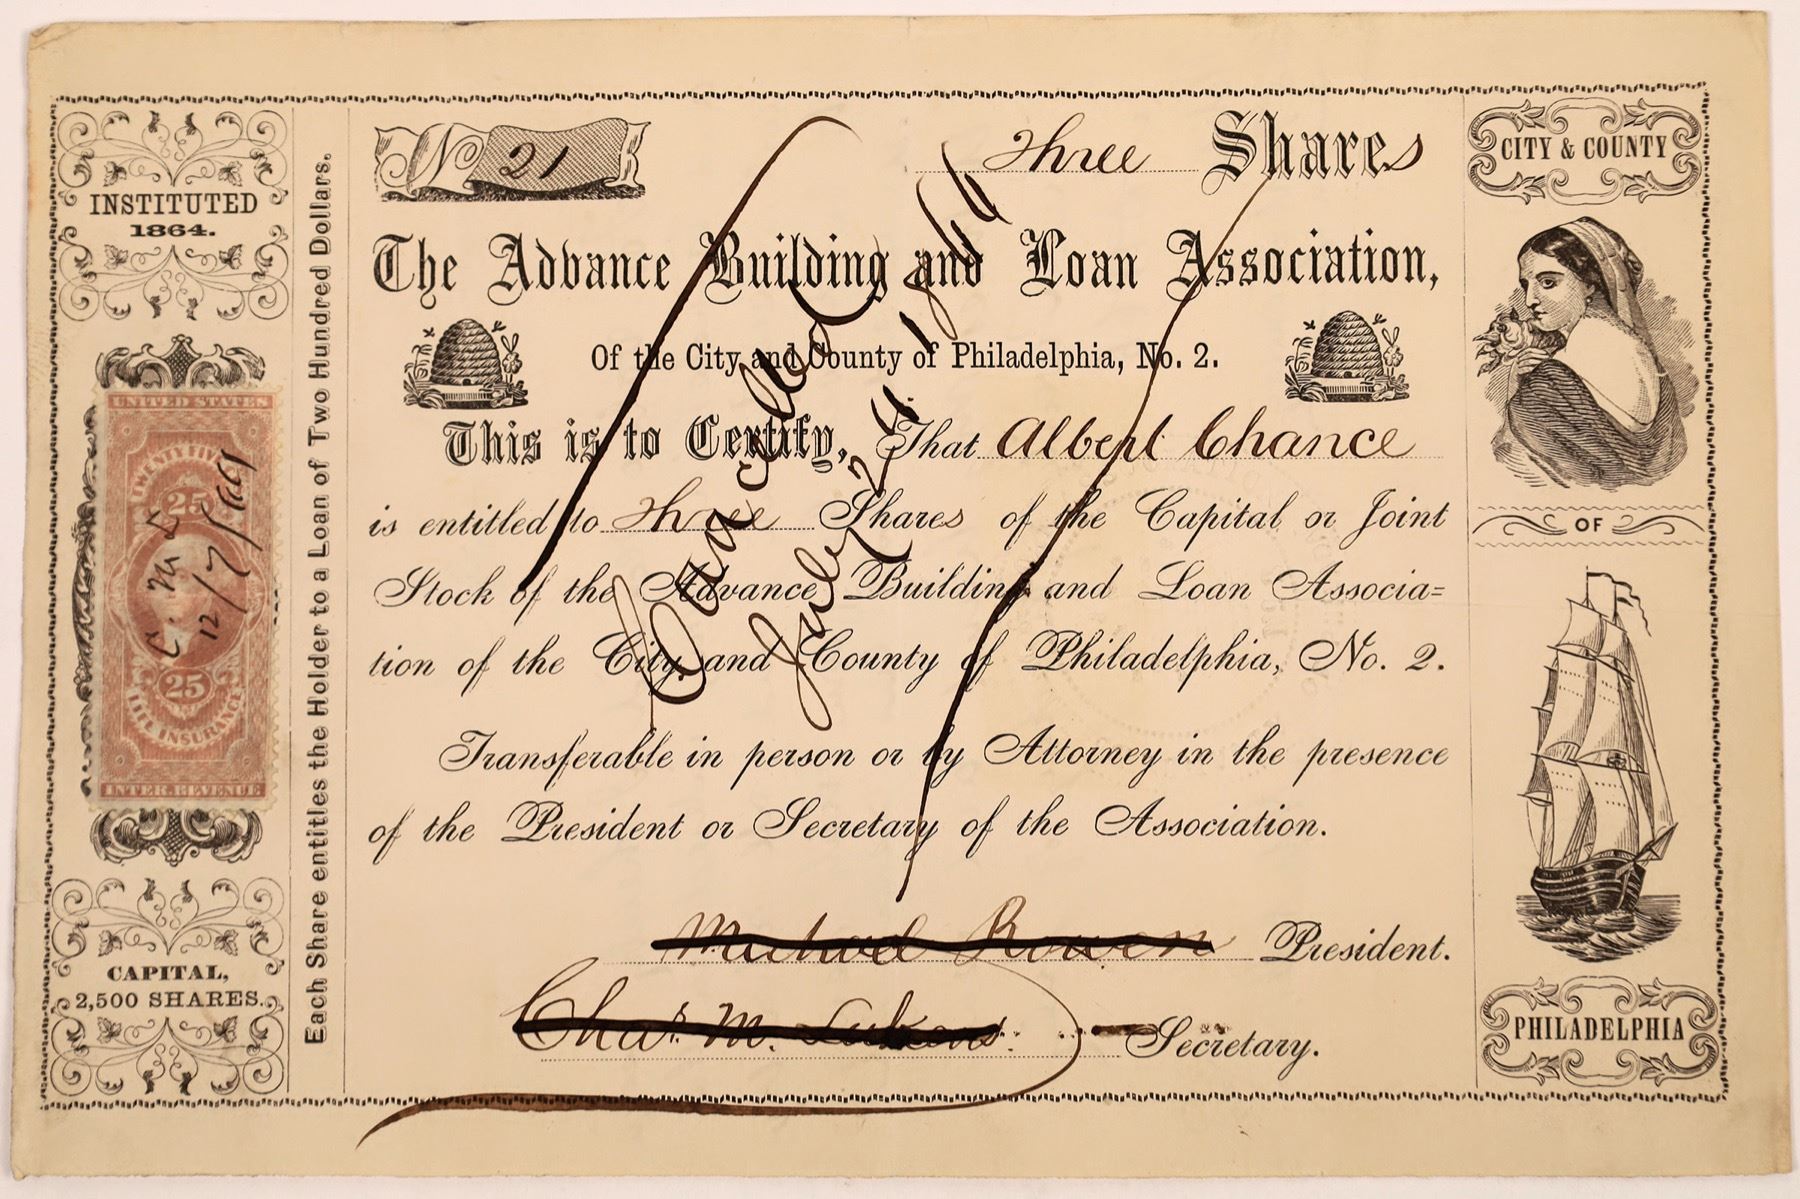 INSTITUTED
1864.
UNITED STATES
TWENTY FIVE
25
C. M. L
12/7/
25
LIFE INSURANCE
INTER. REVENUE
CAPITAL,
2,500 SHARES.
Each Share entitles the Holder to a Loan of Two Hundred Dollars.
No 21
Three Shares
The Advance Building and Loan Association,
Of the City and County of Philadelphia, No. 2.
This is to Certify, That Albert Chance
is entitled to Three Shares of the Capital or Joint
Stock of the Advance Building and Loan Associa=
tion of the City and County of Philadelphia, No. 2.
Transferable in person or by Attorney in the presence
of the President or Secretary of the Association.
Michael Rowen President.
Chas. M. Lukens. Secretary.
Cancelled
July 24 1866
CITY & COUNTY
OF
PHILADELPHIA